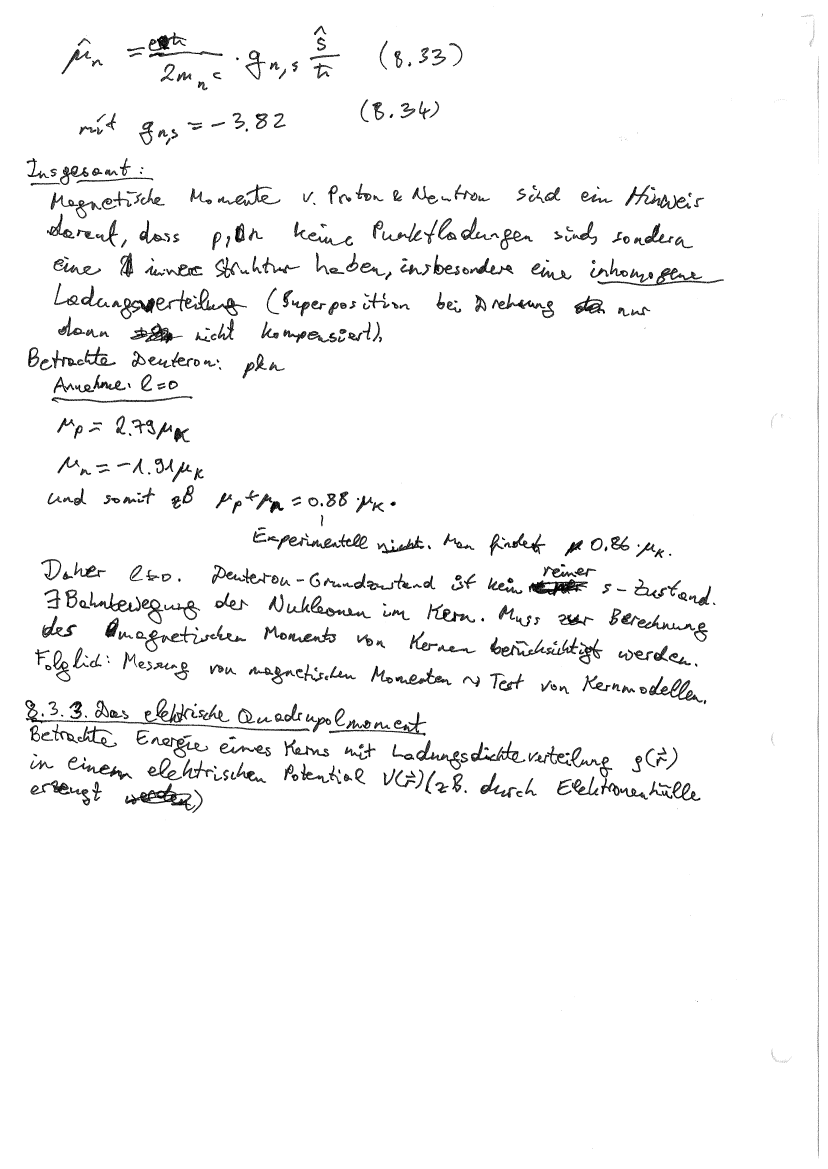 μ̂_n = eħ/(2m_n c) · g_{n,s} ŝ/ħ (8.33)
mit g_{n,s} = -3.82 (8.34)
Insgesamt:
Magnetische Momente v. Proton & Neutron sind ein Hinweis
darauf, dass p, n keine Punktladungen sind, sondern
eine innere Struktur haben, insbesondere eine inhomogene
Ladungsverteilung (Superposition bei Drehung nur
dann nicht kompensiert).
Betrachte Deuteron: p&n
Annahme: l=0
μ_p = 2.79 μ_K
μ_n = -1.91 μ_K
und somit zB μ_p + μ_n = 0.88 · μ_K.
Experimentell nicht. Man findet μ 0.86 · μ_K.
Daher l≠0. Deuteron-Grundzustand ist kein reiner s-Zustand.
∃ Bahnbewegung der Nukleonen im Kern. Muss zur Berechnung
des magnetischen Moments von Kernen berücksichtigt werden.
Folglich: Messung von magnetischen Momenten ⤳ Test von Kernmodellen.
8.3.3. Das elektrische Quadrupolmoment
Betrachte Energie eines Kerns mit Ladungsdichteverteilung ρ(r⃗)
in einem elektrischen Potential V(r⃗) (zB. durch Elektronenhülle
erzeugt)